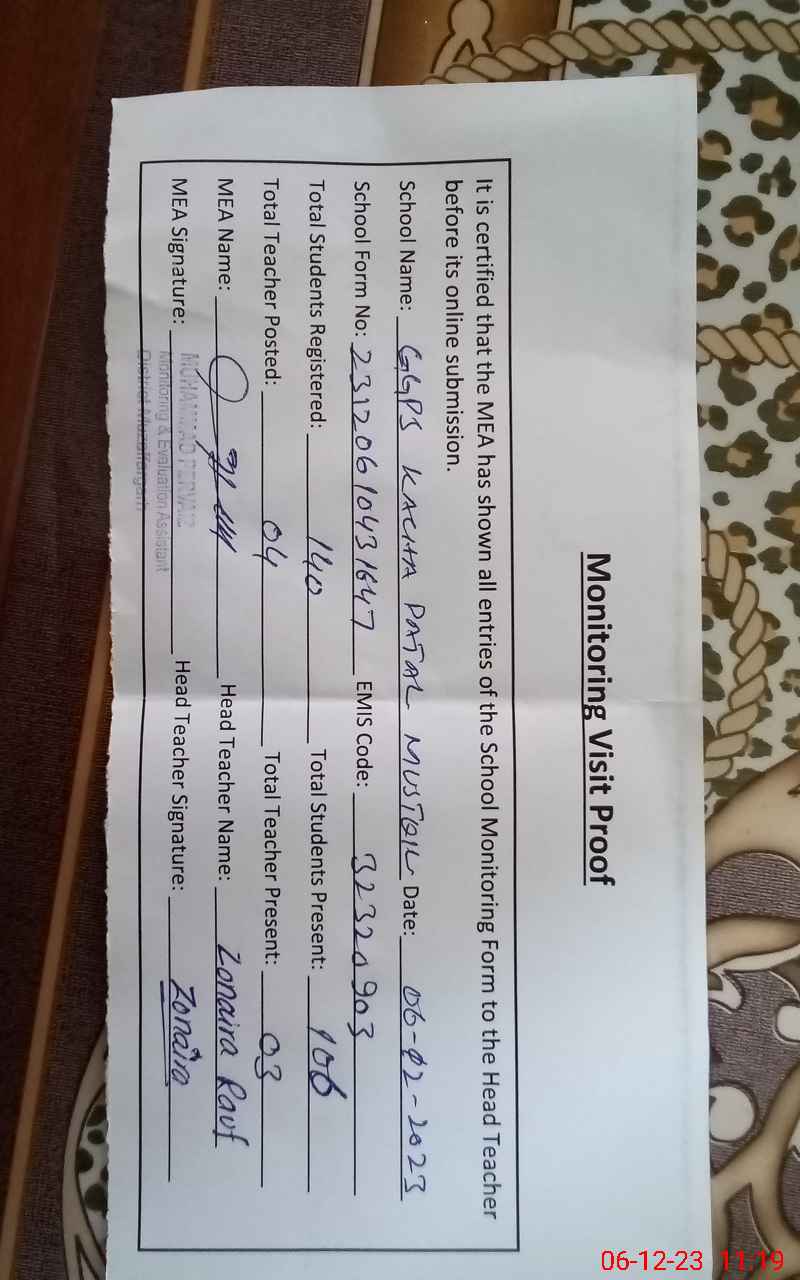 Monitoring Visit Proof
It is certified that the MEA has shown all entries of the School Monitoring Form to the Head Teacher
before its online submission.
School Name: GGPS KACHA PATAL MUSTQIL Date: 06-12-2023
School Form No: 2312061043 1647 EMIS Code: 32320903
Total Students Registered: 140 Total Students Present: 106
Total Teacher Posted: 04 Total Teacher Present: 03
MEA Name: Head Teacher Name: Zonaira Rauf
MEA Signature: Head Teacher Signature: Zonaira
MUHAMMAD PERVAIZ
Monitoring & Evaluation Assistant
District Muzaffargarh
06-12-23 11:19